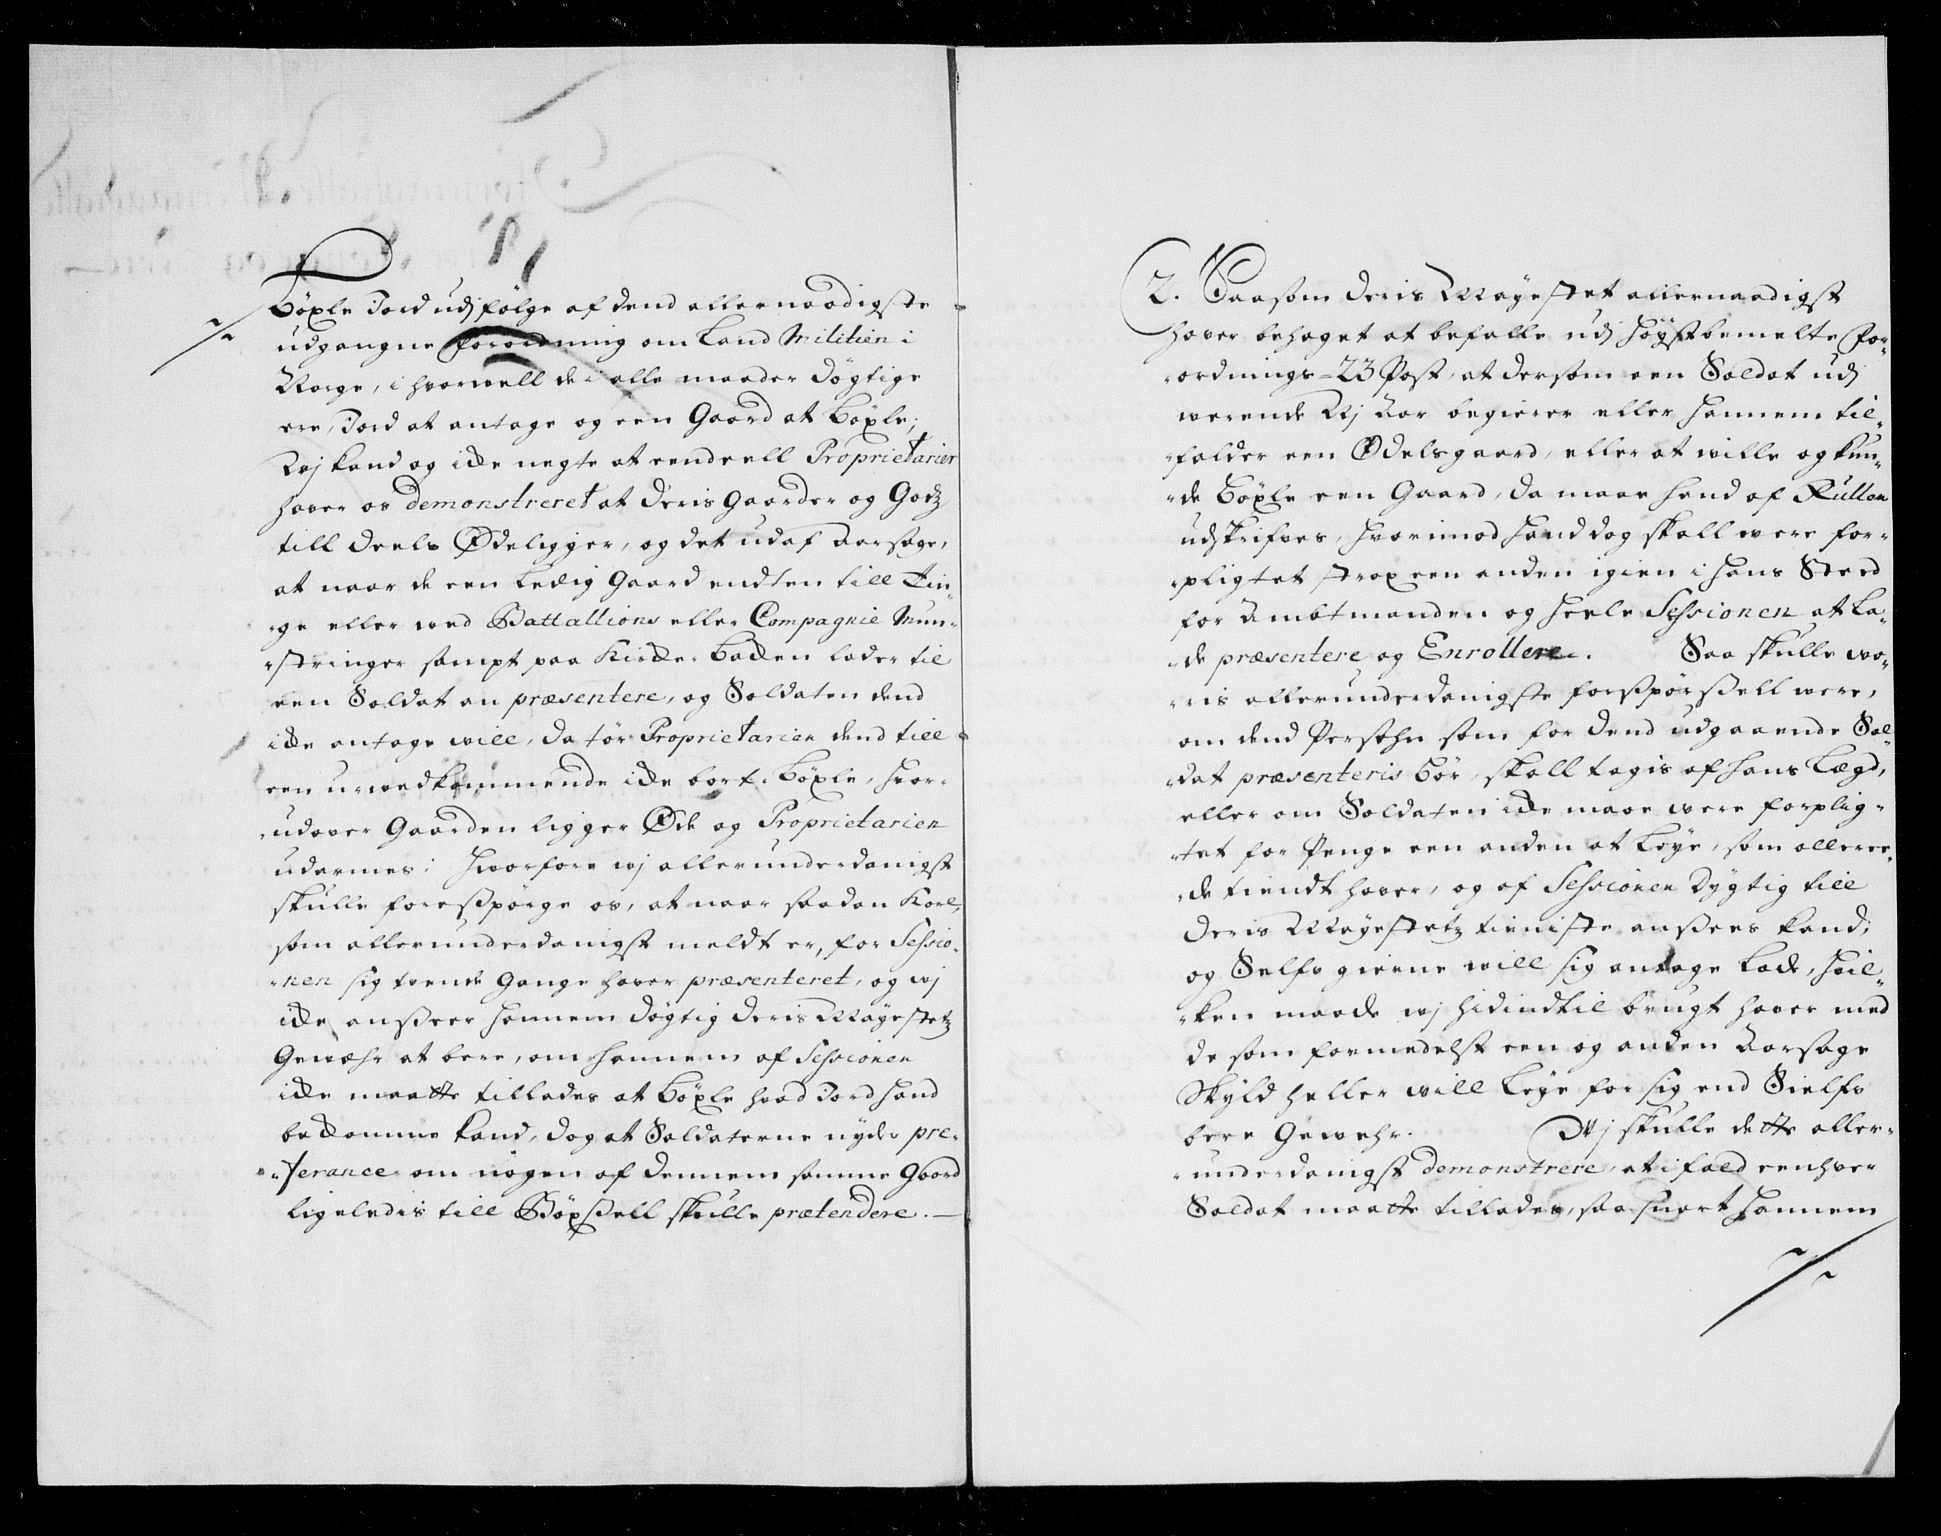 Böxle Jord udj fölge af dend allernaadigste
udgangne forordning om Land Militien i
Norge, i hvorvell de i alle maader dögtige
ere, Jord at antage og een Gaard at böxle;
Wj kand og icke negte at eendeell Proprietarier
haver os demonstreret at deris gaarder og Godz
till deels Ödeligger, og det udaf aarsage,
at naar de een ledig Gaard endten till Tin-
-ge eller ved Battallions eller Compagnie Mun-
-stringer sampt paa Kircke-backen lader til
een Soldat an præsentere, og Soldaten dend
icke antage will, da tör Proprietarien dend till
een u-wedkommende icke bort-böxle, hvor-
-udover Gaarden ligger Öde og Proprietarien
udarmes; hvorfore wj allerunderdanigst
skulle foresspörge os, at naar saadan Karl,
som allerunderdanigst meldt er, for Sessio-
-nen sig tvende Gange haver præsenteret, og wj
icke ansseer hannem dögtig deris Mayestetz
Gewæhr at bere, om hannem af Sessionen
icke maatte tillades at böxle hvad Jord hand
bekomme kand, dog at Soldaterne nyder pre-
-ferance om nogen af dennem samme Gaard
ligeledis till Böxssell skulle prætendere.
2. Saasom deris Mayestet allernaadigst
haver behaget at befalle udj höystbemelte For-
-ordnings 23 Post, at dersom een Soldat udj
werende Wj Aar begierer eller hannem til-
-falder een Ödelsgaard, eller at wille og kun-
-de böxle een Gaard, da maae hand af Rullen
udskrifves, hvorimod hand dog skall were for-
-pligtet strax een anden igien i hans Sted
for Ambtmanden og heele Sessionen at la-
-de præsentere og Enrollere. Saa skulle wo-
-ris allerunderdanigste forsspörssell were,
om dend Persohn som for dend udgaaende Sol-
-dat præsenteris bör, skall tagis af hans Lægd,
eller om Soldaten icke maae were forplig-
-tet for Penge een anden at leye, som alleree-
-de tiendt haver, og af Sessionen dygtig till
deris Mayestetz tieniste anssees kand;
og Selfv gierne will sig antage lade, hvil-
-ken maade wj hidindtil brugt haver med
de som formedelst een og anden Aarsage
Skyld heller will leye for sig end Sielfv
bere Gewehr. Wj skulle dette aller-
-underdanigst demonstrere, at i fald eenhver
Soldat maatte tillades, saa snart hannem